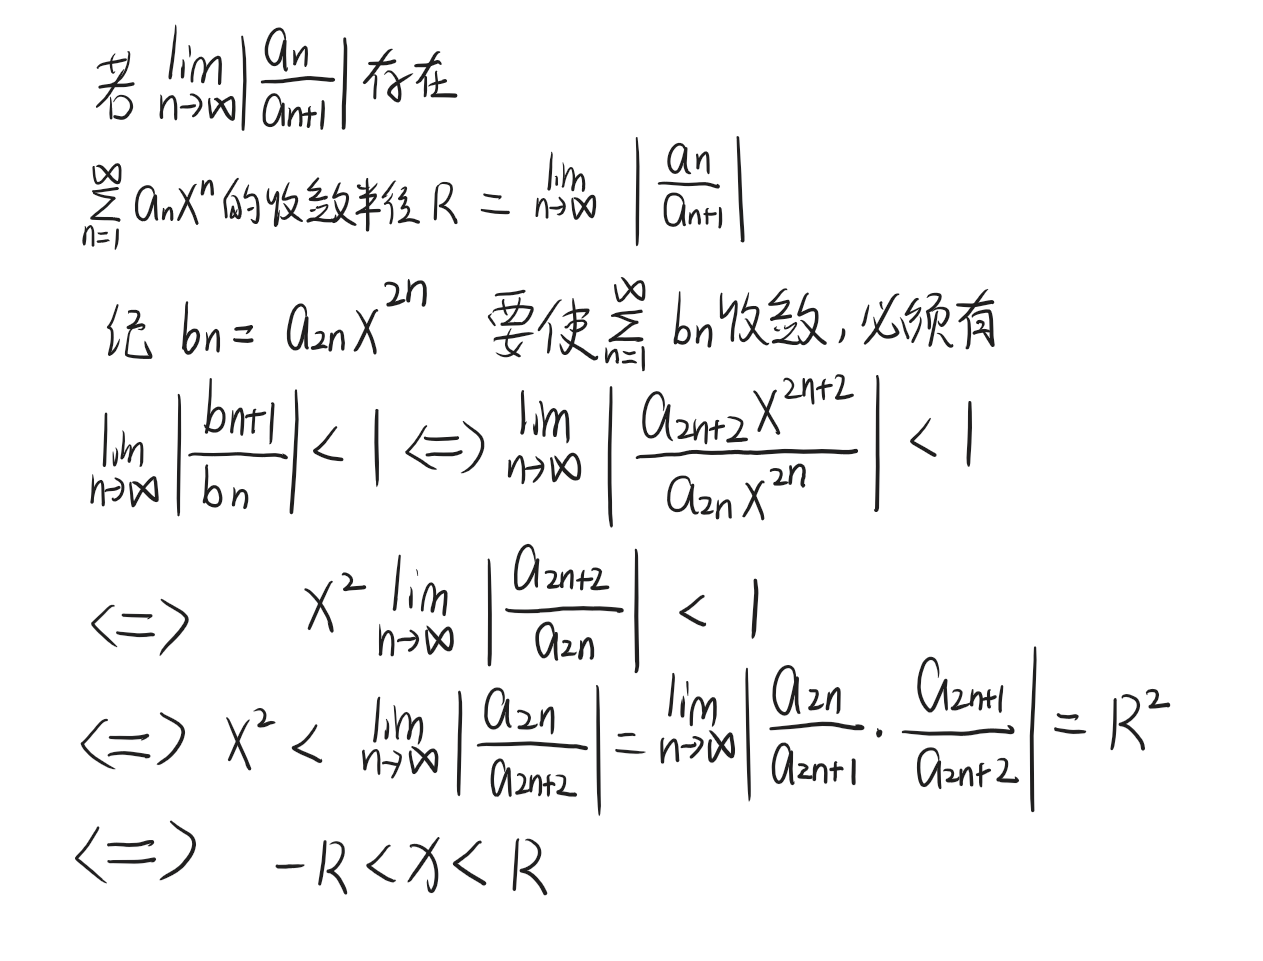 若 lim n→∞ |an/an+1| 存在
∞∑n=1 anxⁿ的收敛半径 R = lim n→∞ |an/an+1|
记 bn = a2n x²ⁿ 要使 ∞∑n=1 bn收敛,必须有
lim n→∞ |bn+1/bn| < 1 <=> lim n→∞ |a2n+2 x²ⁿ⁺²/a2n x²ⁿ| < 1
<=> x² lim n→∞ |a2n+2/a2n| < 1
<=> x² < lim n→∞ |a2n/a2n+2| = lim n→∞ |a2n/a2n+1 · a2n+1/a2n+2| = R²
<=> -R < x < R